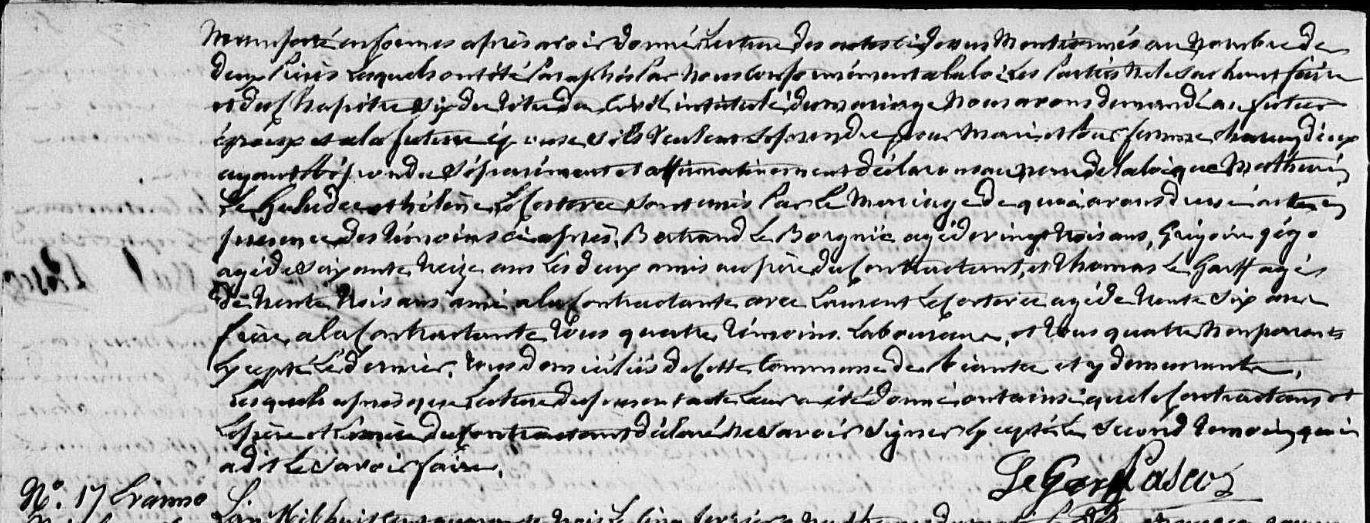 en forme après avoir donné lecture des actes ci dessus Mentionnés au Nombre de
deux Pièces Lesquels ont été Paraphés Par Nous Conformément a la loi Les Parties Ne le Sachant faire
et du Chapitre Six du titre du Civil intitulé du mariage Nous avons demandé au futur
époux et a la future épouse S'ils Veulent Se prendre pour Mari et Pour femme chacun d'eux
ayant Répondu Séparément et affirmativement déclarons au nom de la loi que Mathurin
Le et hélène Le Sont unis Par Le Mariage de quoi avons dressé acte en
presence des témoins ci après, Bertrand Le Borgnic agé de vingt trois ans, Grégoire
agé de Soixante Treize ans Les deux amis au père du Contractant, et Thomas Le Goff agé
de trente trois ans ami a la Contractante avec Laurent Le agé de trente Six ans
frère a la Contractante tous quatre témoins Laboureurs, et tous quatre Non parents
Excepté Le dernier. tous domiciliés de Cette Commune de et y demeurants,
Lesquels après que Lecture du present acte Leur a été donné ont ainsi que les Contractants et
Le père et la mère du Contractant déclaré Ne Savoir Signer Excepté Le Second temoin qui
a dit Le Savoir faire.
N°. 17
L'an Mil huit cent quarante trois Le Cinq fevrier